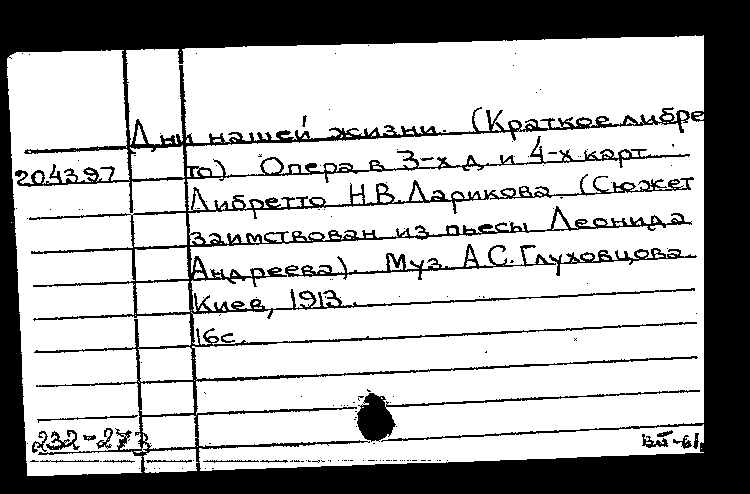 Дни нашей жизни. (Краткое либре
204397 то) Опера в 3-х д. и 4-х карт.
Либретто Н.В.Ларикова (Сюжет
заимствован из пьесы Леонида
Андреева). Муз. А.С.Глуховцова.
Киев, 1913.
16с.
232-273